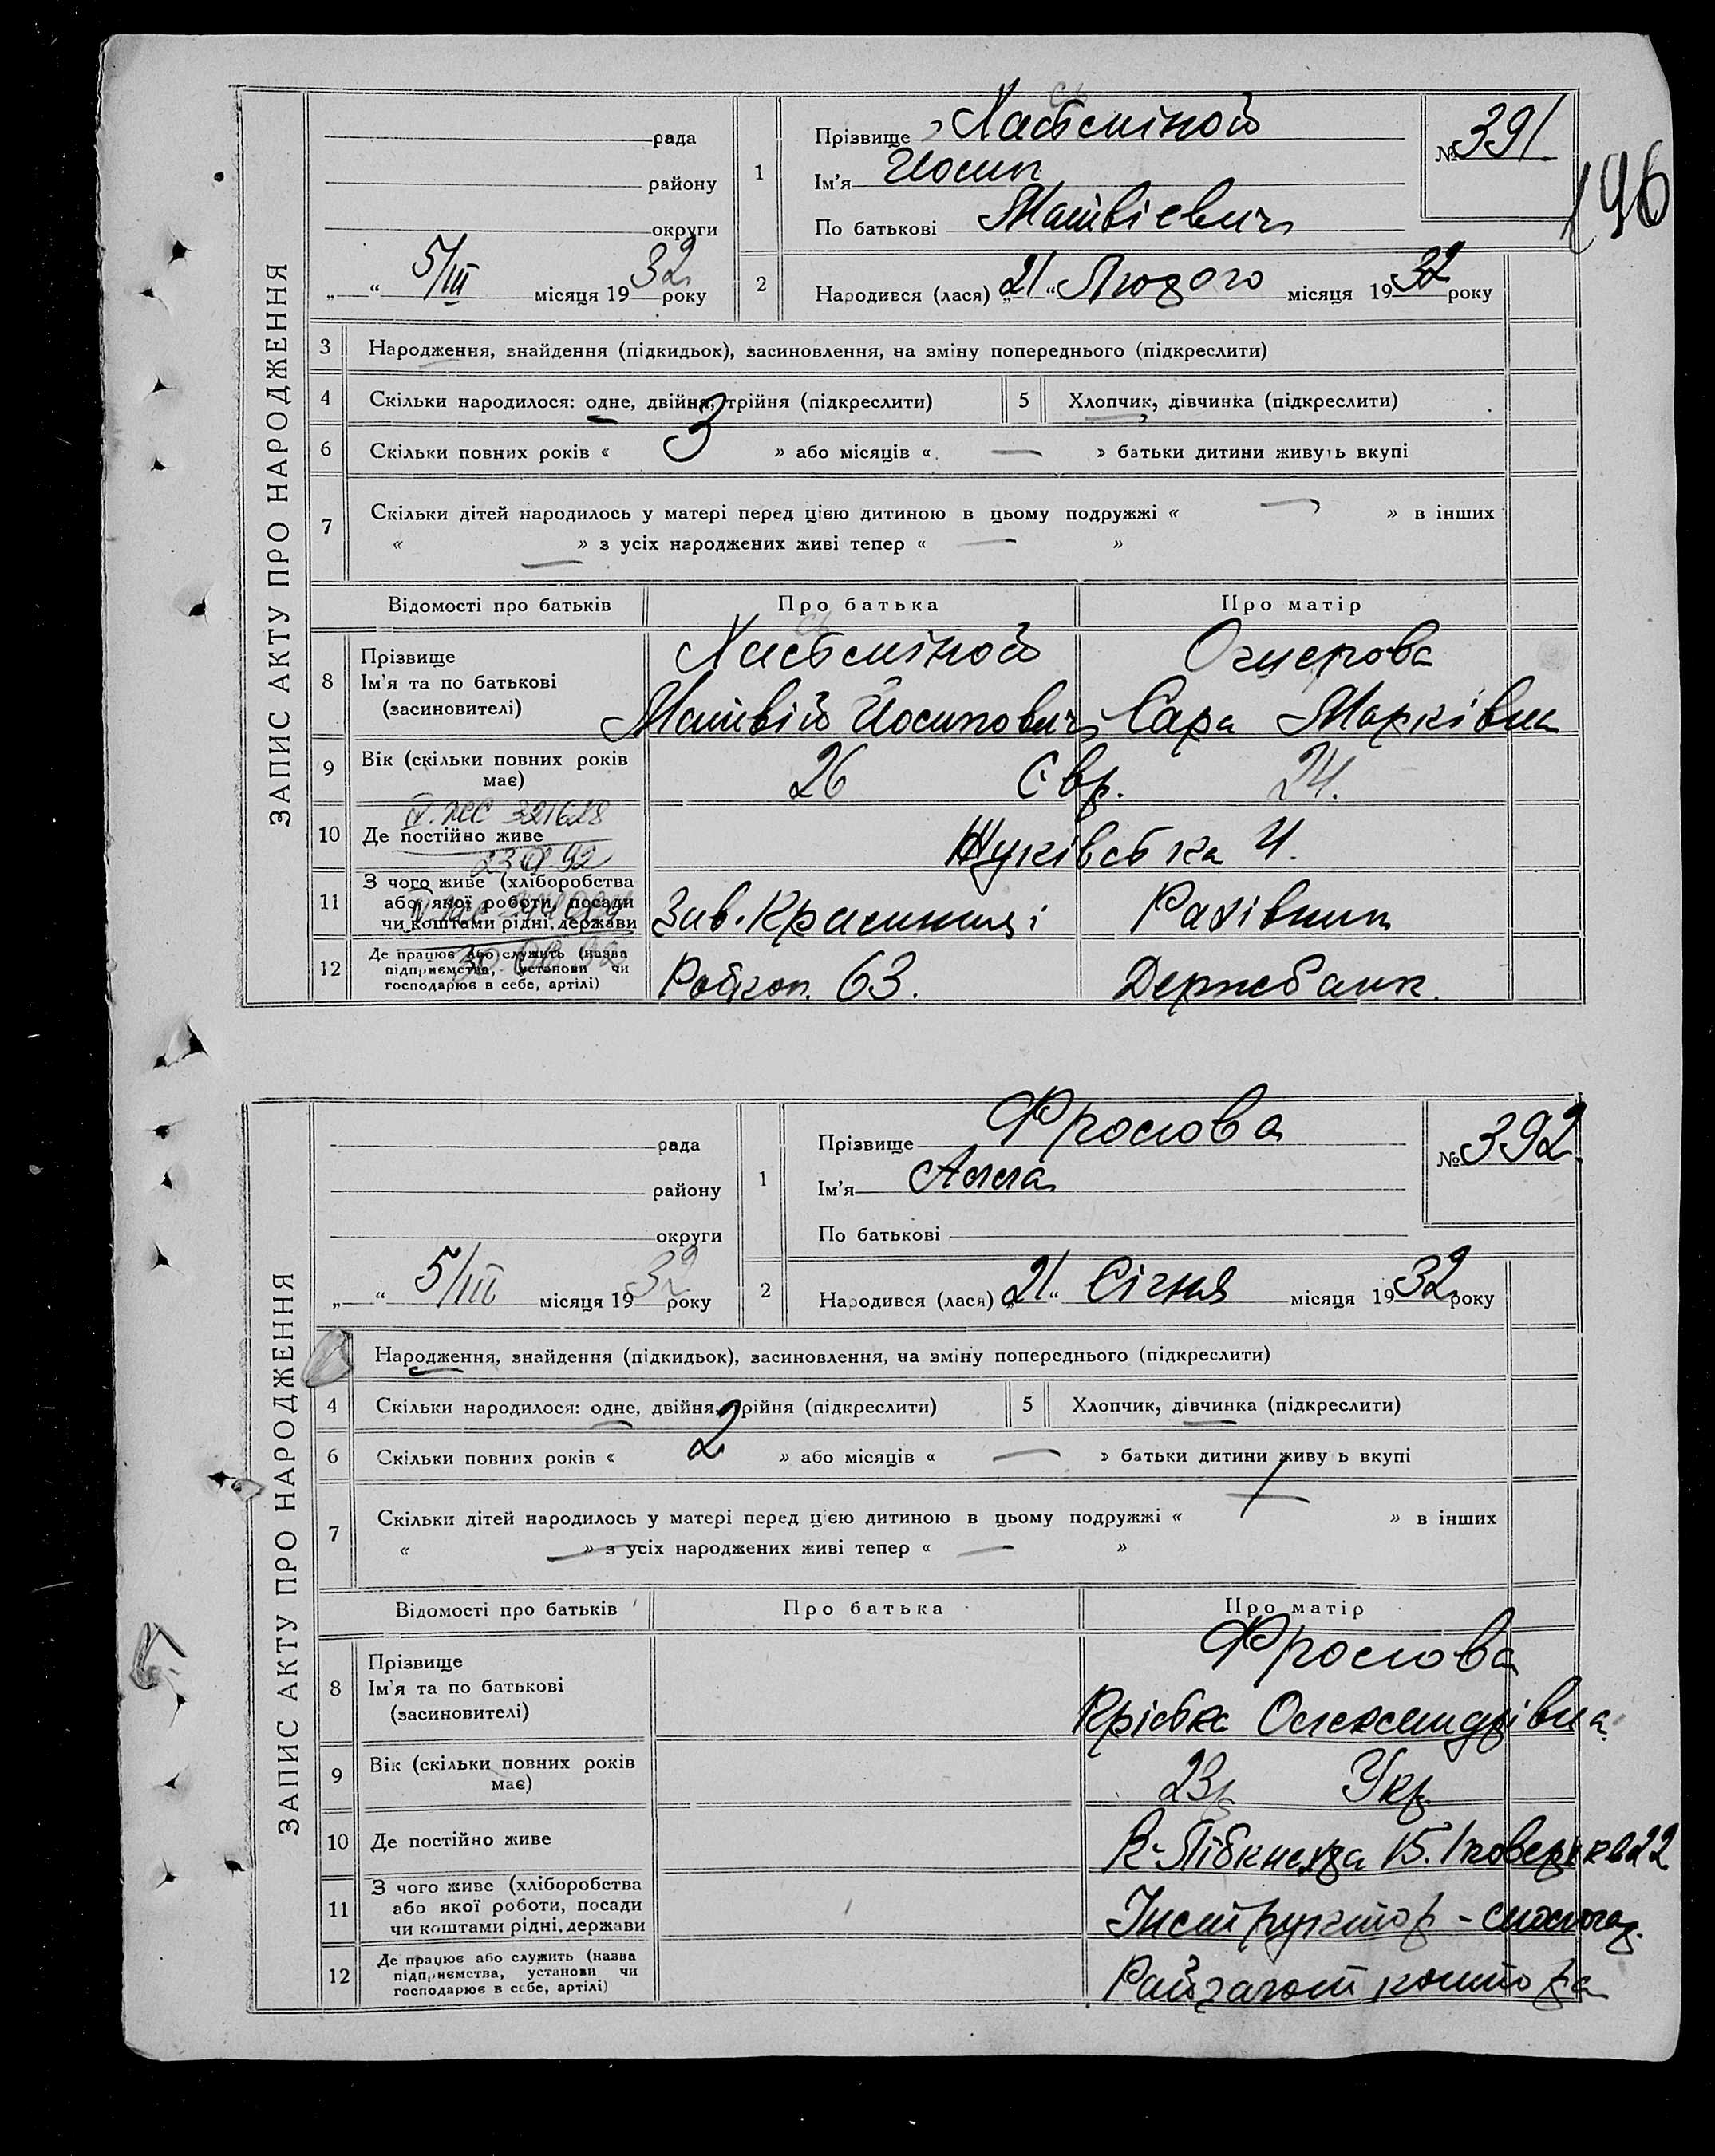 ЗАПИС АКТУ ПРО НАРОДЖЕННЯ
196
рада
району
округи
„ “ 5/III місяця 1932 року
1
Прізвище
Ім'я Йосип
По батькові Матвієвич
№ 391.
2
Народився (лася) „21“ Лютого місяця 1932 року
3 Народження, знайдення (підкидьок), засиновлення, на зміну попереднього (підкреслити)
4 Скільки народилося: одне, двійня, трійня (підкреслити) 5 Хлопчик, дівчинка (підкреслити)
6 Скільки повних років « 3 » або місяців « — » батьки дитини живуть вкупі
7 Скільки дітей народилось у матері перед цією дитиною в цьому подружжі « — » в інших
« — » з усіх народжених живі тепер « — »
Відомості про батьків Про батька Про матір
8 Прізвище
Ім'я та по батькові
(засиновителі)
Матвій Йосипович Сара Марківна
9 Вік (скільки повних років має) 26 Євр. 24.
10 Де постійно живе Жуківська 4.
11 З чого живе (хліборобства або якої роботи, посади чи коштами рідні, держави Зав. Рахівник
12 Де працює або служить (назва підприємства, установи чи господарює в себе, артілі) 63. Держбанк.
ЗАПИС АКТУ ПРО НАРОДЖЕННЯ
рада
району
округи
„ “ 5/III місяця 1932 року
1
Прізвище Фролова
Ім'я Алла
По батькові
№ 392.
2
Народився (лася) „21“ Січня місяця 1932 року
Народження, знайдення (підкидьок), засиновлення, на зміну попереднього (підкреслити)
4 Скільки народилося: одне, двійня, трійня (підкреслити) 5 Хлопчик, дівчинка (підкреслити)
6 Скільки повних років « 2 » або місяців « — » батьки дитини живу ь вкупі
7 Скільки дітей народилось у матері перед цією дитиною в цьому подружжі « » в інших
« — » з усіх народжених живі тепер « — »
Відомості про батьків Про батька Про матір
8 Прізвище
Ім'я та по батькові
(засиновителі)
Фролова
Олександрівна
9 Вік (скільки повних років має) 23 р Укр
10 Де постійно живе К-Лібкнехта 15. 1 поверх кв 22
11 З чого живе (хліборобства або якої роботи, посади чи коштами рідні, держави Інструктор -
12 Де працює або служить (назва підприємства, установи чи господарює в себе, артілі) контора